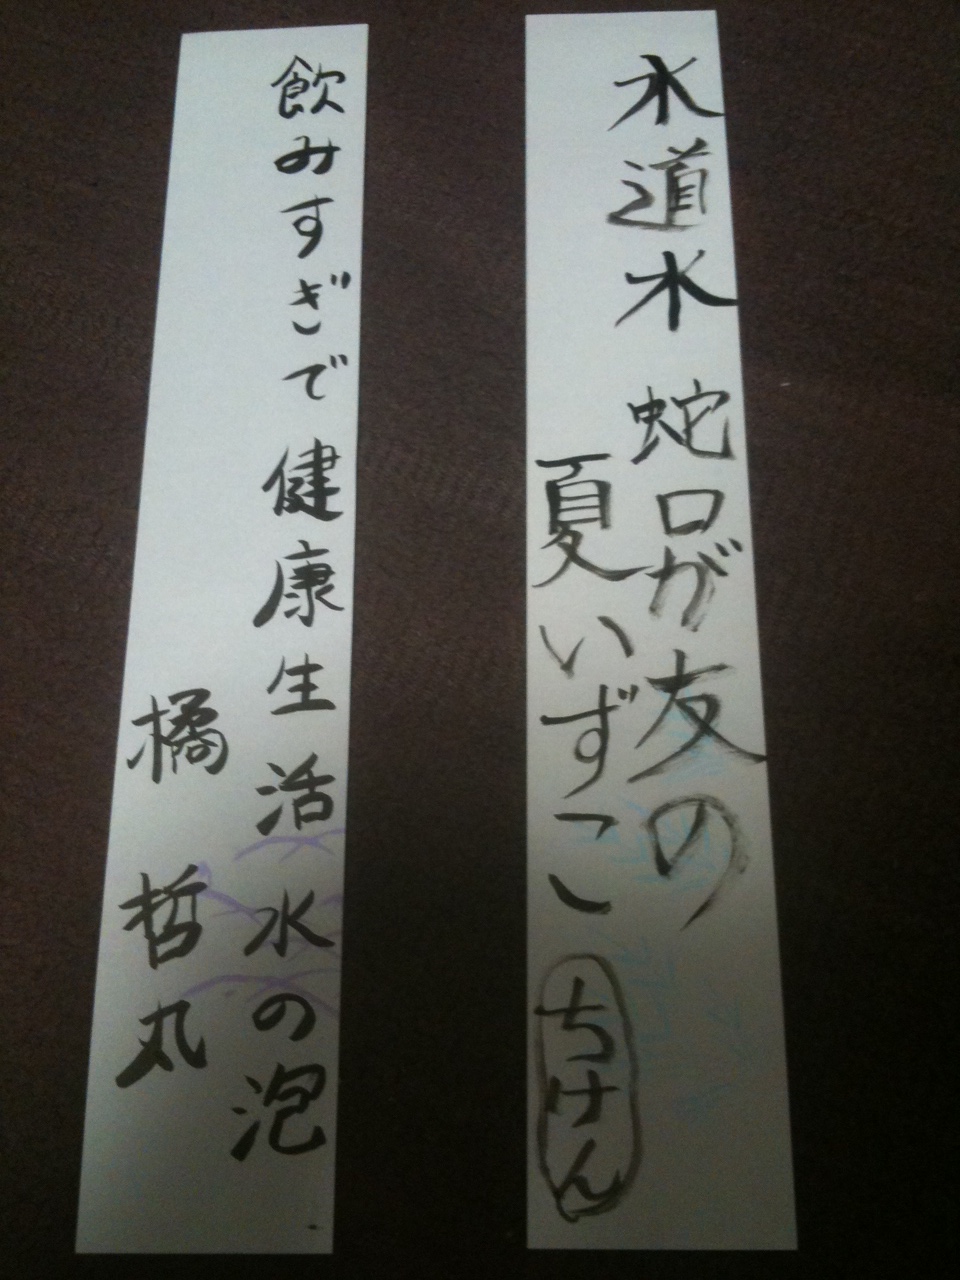 水道水 蛇口が友の
夏いずこ ちけん
飲みすぎで 健康生活 水の泡
橘 哲丸